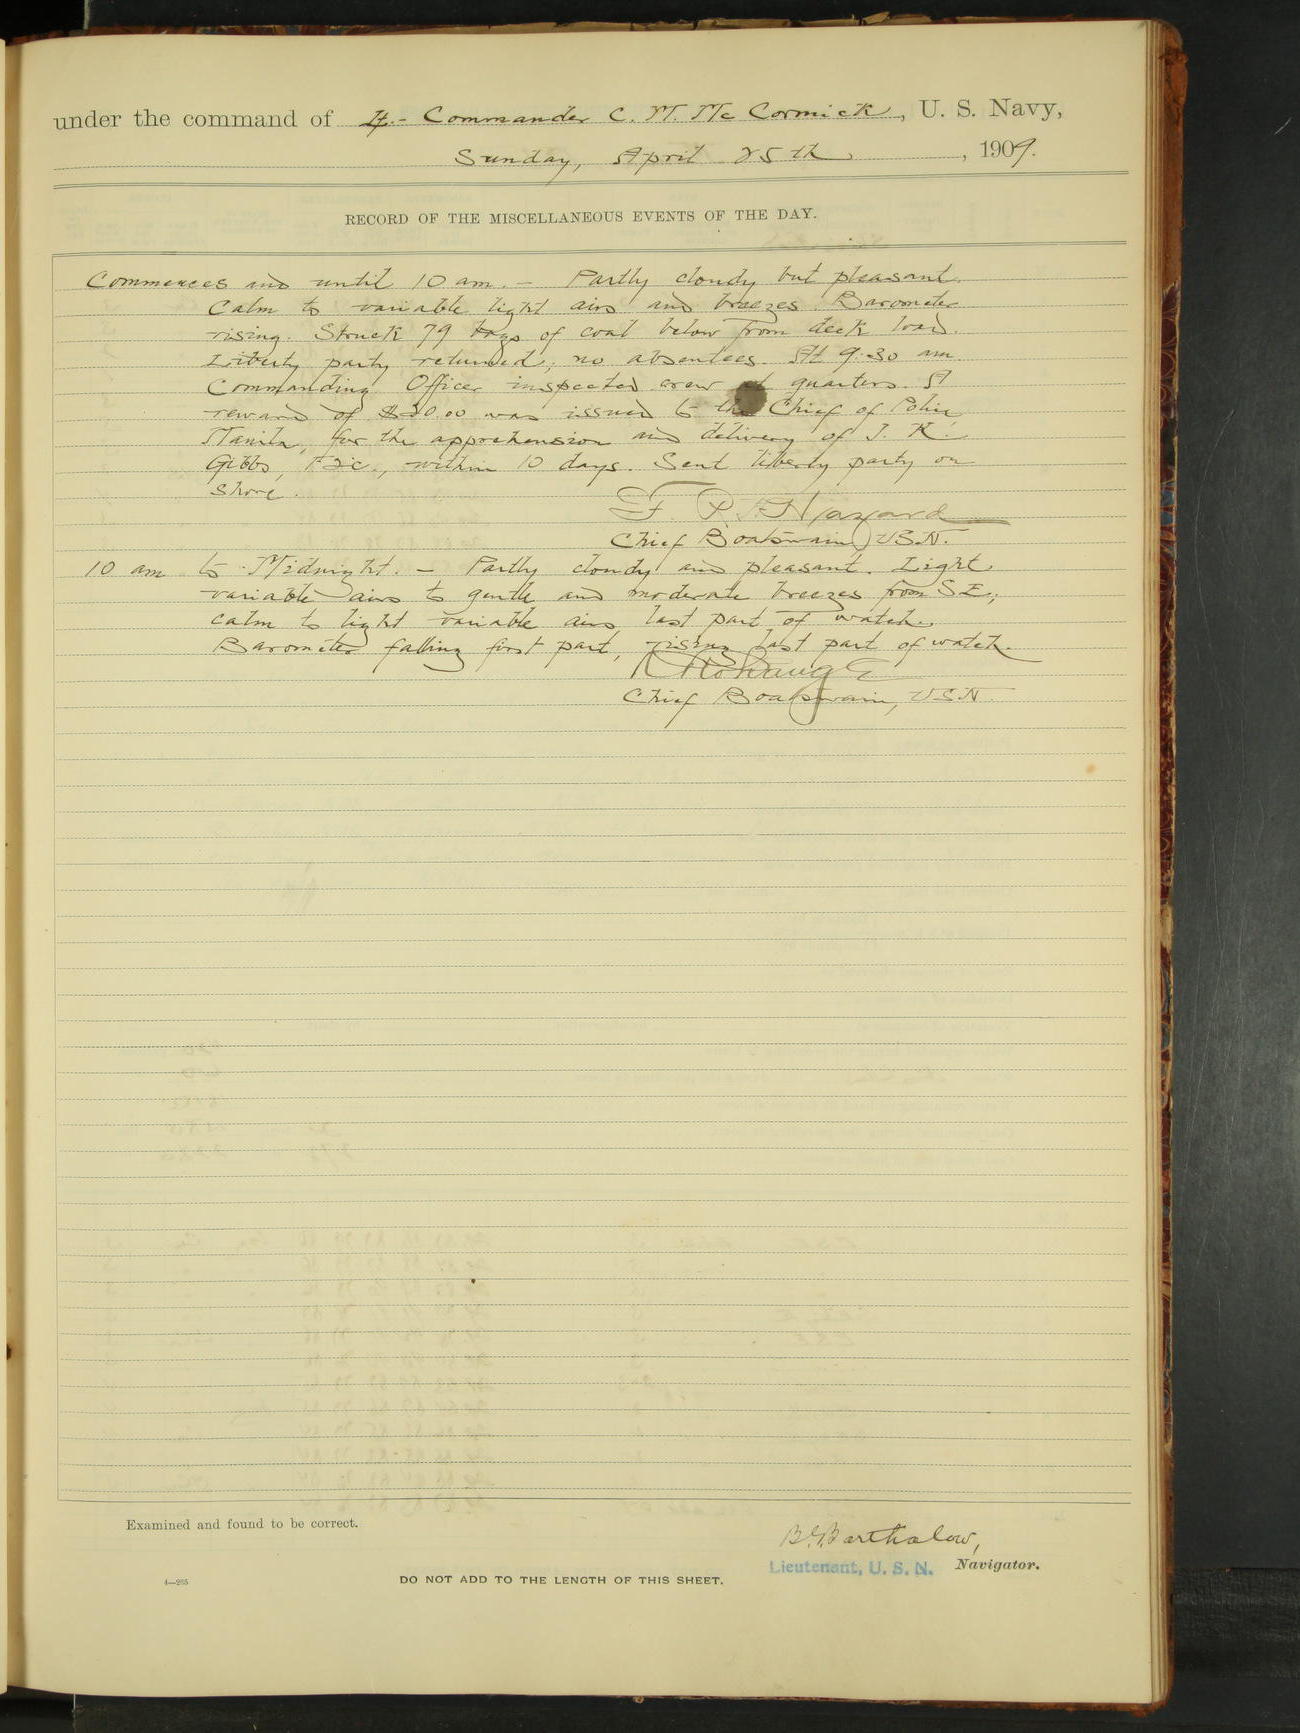 under the command of Lt.- Commander C. M. McCormick, U. S. Navy,
Sunday, April 25th, 1909.
RECORD OF THE MISCELLANEOUS EVENTS OF THE DAY.
Commences and until 10 am. - Partly cloudy but pleasant.
Calm to variable light airs and breezes. Barometer
rising. Struck 79 bags of coal below from deck load.
Liberty party returned, no absentees. At 9:30 am
Commanding Officer inspected crew at quarters. A
reward of $20.00 was issued to the Chief of Police
Manila, for the apprehension and delivery of J. K.
Gibbs, F2c., within 10 days. Sent liberty party on
shore.
Hazard
Chief Boatswain, USN.
10 am to Midnight. - Partly cloudy and pleasant. Light
variable airs to gentle and moderate breezes from SE,
calm to light variable airs last part of watch.
Barometer falling first part, rising last part of watch.
Chief Boatswain, USN
Examined and found to be correct.
Bartholow,
Lieutenant, U. S. N. Navigator.
4—265
DO NOT ADD TO THE LENGTH OF THIS SHEET.